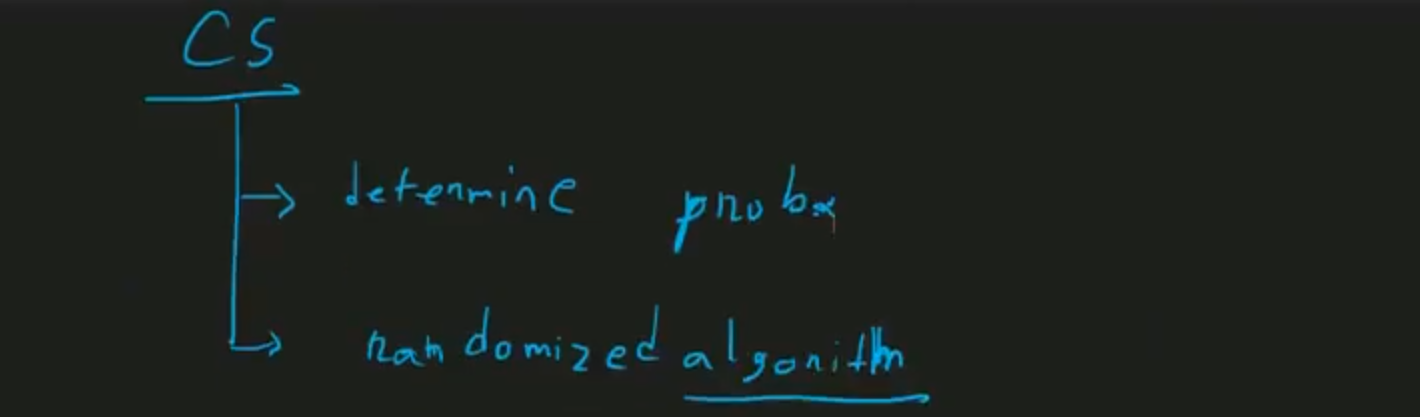 CS
determine proba
randomized algorithm